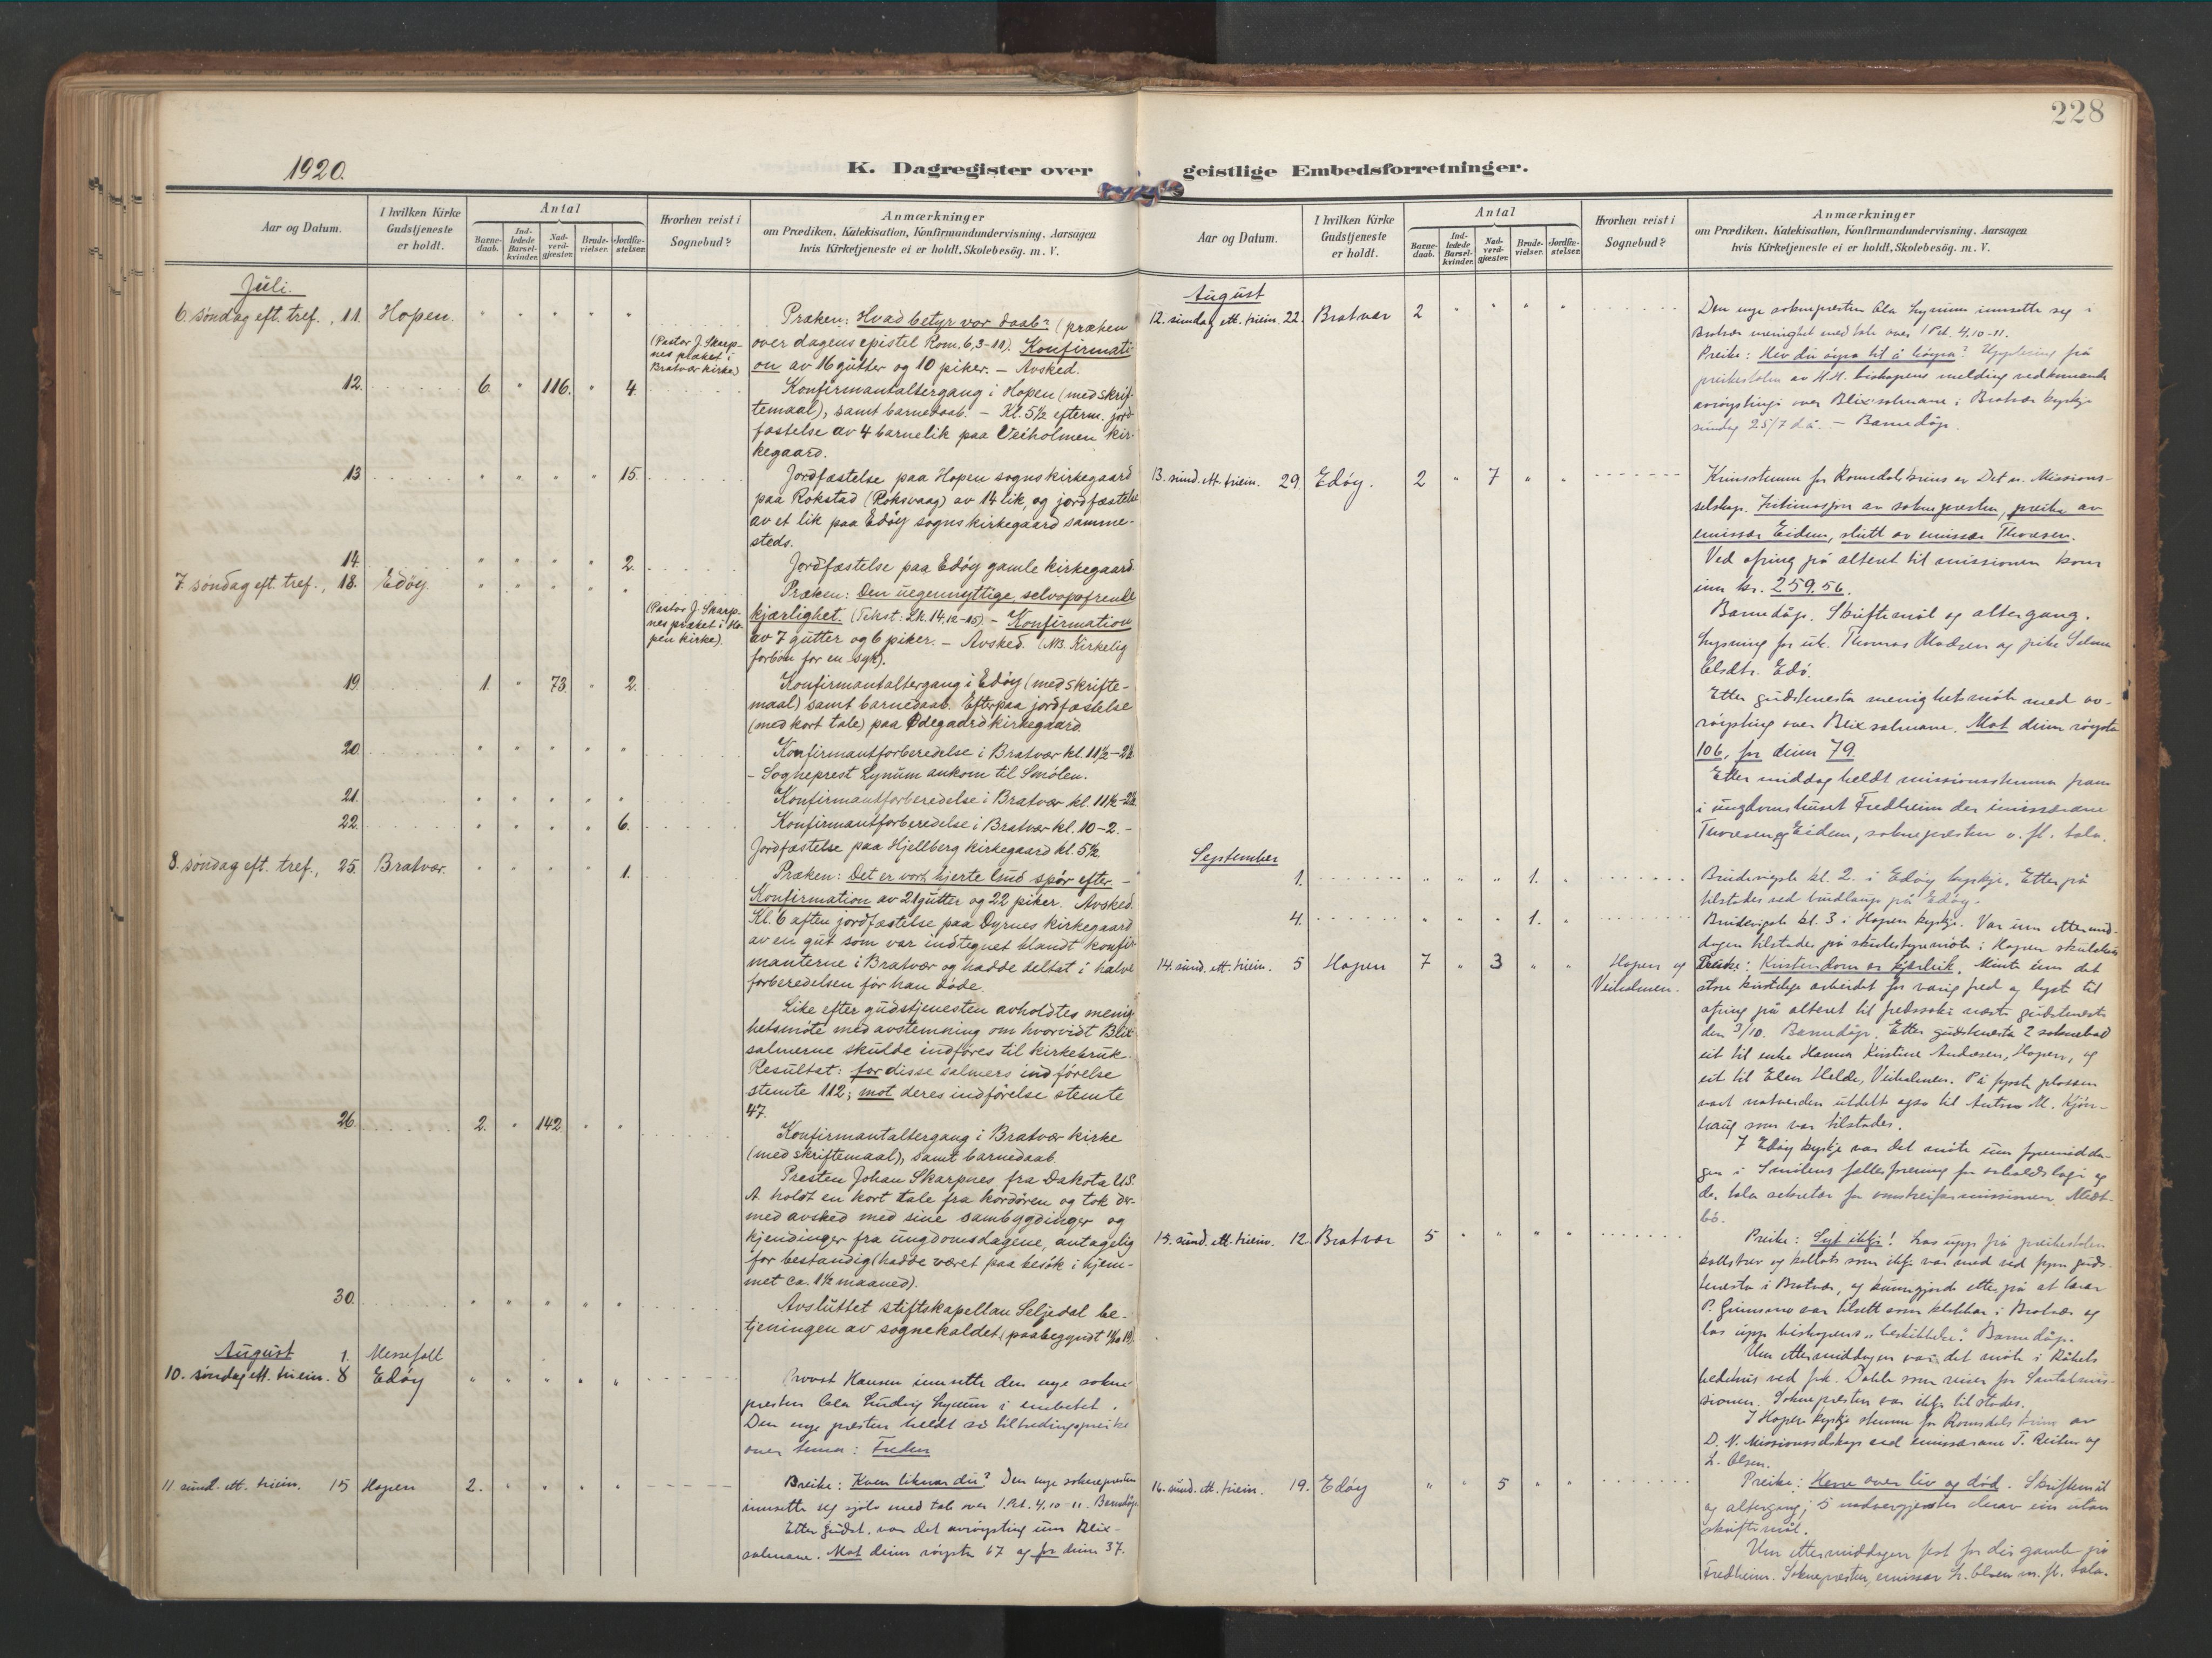 228
1920.
K. Dagregister over geistlige Embedsforretninger.
Aar og Datum.
I hvilken Kirke Gudstjeneste er holdt.
Antal
Barnedaab.
Indledede Barselkvinder.
Nadverdgjæster.
Brudevielser.
Jordfæstelser.
Hvorhen reist i Sognebud?
Anmærkninger
om Prædiken, Katekisation, Konfirmandundervisning, Aarsagen
hvis Kirketjeneste ei er holdt, Skolebesøg. m. V.
Juli.
6. søndag eft. tref., 11. Hopen. " " " " " Præken: Hvad betyr vor daab? (præken
(Pastor J. Skarpnes præket i Bratvær kirke) over dagens epistel Rom. 6,3-11). Konfirmati-
on av 16 gutter og 10 piker. – Avsked.
12. 6. " 116. " 4. Konfirmantaltergang i Hopen (med skrif-
temaal), samt barnedaab. – Kl. 5½ efterm. jord-
fæstelse av 4 barnelik paa Veiholmen kir-
kegaard.
13. " " " " 15. Jordfæstelse paa Hopen sogns kirkegaard
paa Rokstad (Roksvaag) av 14 lik, og jordfæstelse
av et lik paa Edøy sogns kirkegaard samme-
steds.
14. " " " " 2. Jordfæstelse paa Edøy gamle kirkegaard.
7. søndag eft. tref., 18. Edøy. " " " " " Præken: Den uegennyttige, selvopofrende
(Pastor J. Skarpnes præket i Hopen kirke). kjærlighet. (Tekst: Lk. 14,12-15) – Konfirmation
av 7 gutter og 6 piker. – Avsked. (NB. Kirkelig
forbøn for en syk).
19. 1. " 73. " 2. Konfirmantaltergang i Edøy (med skrifte-
maal) samt barnedaab. Efterpaa jordfæstelse
(med kort tale) paa Ødegaard kirkegaard.
20. " " " " " Konfirmantforberedelse i Bratvær kl. 11½-2½
– Sogneprest Lynum ankom til Smølen.
21. " " " " " Konfirmantforberedelse i Bratvær kl. 11½-2½
22. " " " " 6. Konfirmantforberedelse i Bratvær kl. 10-2. –
Jordfæstelse paa Hjellberg kirkegaard kl. 5½.
8. søndag eft. tref., 25. Bratvær. " " " " 1. Præken: Det er vort hjerte Gud spør efter. –
Konfirmation av 21 gutter og 22 piker. Avsked.
Kl. 6 aften jordfæstelse paa Dyrnes kirkegaard
av en gut som var indtegnet blandt konfir-
manterne i Bratvær og hadde deltat i halve
forberedelsen før han døde.
Like efter gudstjenesten avholdtes menig-
hetsmøte med avstemning om hvorvidt Blix'
salmerne skulde indføres til kirkebruk.
Resultat: for disse salmers indførelse
stemte 112; mot deres indførelse stemte
47.
26. 2. " 142. " " Konfirmantaltergang i Bratvær kirke
(med skriftemaal), samt barnedaab.
Presten Johan Skarpnes fra Dakota U.S.
A. holdt en kort tale fra kordøren og tok der-
med avsked med sine sambygdinger og
kjendinger fra ungdomsdagene, antagelig
for bestandig (hadde været paa besøk i hjem-
met ca. 1½ maaned).
30. " " " " " Avsluttet stiftskapellan Seljedal be-
tjeningen av sognekaldet (paabegyndt 19).
August 1. Messefall
10. søndag ett. triein. 8 Edøy " " " " " Provst Hansen innsette den nye sokne-
presten Ola Ludvig Lynum i embetet.
Den nye presten heldt so tiltredingspreike
over temaet: Freden
11. sund. ett. triein. 15 Hopen 2. " " " " Preike: Kven liknar du? Den nye soknepresten
innsette seg sjølv med tale over 1. Pet. 4,10-11. Barnedåp.
Etter gudst. var det avrøysting um Blix-
salmane. Mot deim røysta 67 og for deim 37.
August
12. sundag ett. triein. 22. Bratvær 2 " " " " Den nye soknepresten Ola Lynum innsette seg i
Bratvær menighet med tale over 1 Pet. 4,10-11.
Preike: Hev du øyra til å høyra? Upplesing frå
preikestolen av H.H. biskopens melding vedkomande
avrøystingi over Blix'salmane i Bratvær kyrkje
sundag 25/7 d.å. – Barnedåp.
13. sund. ett. triein. 29. Edøy. 2 " 7 " " Krinsstemna for Romsdals krins av Det n. Missions-
selskap. Intimasjon av soknepresten, preike av
emissær Eidem, slutt av emissær Thoresen.
Ved ofring på alteret til missionen kom
inn kr. 259.56.
Barnedåp. Skriftemål og altergang.
Lysning for uk. Thomas Madsen og pike Selma
Olsdtr. Edø.
Etter gudstenesta menighetsmøte med av-
røysting over Blix salmane. Mot deim røysta
106, for deim 79.
Etter middag heldt missionsstemna fram
i ungdomshuset Fredheim der emissærane
Thoresen og Eidem, soknepresten o. fl. tala.
September
1. " " " 1. " Brudevigsle kl. 2. i Edøy kyrkje. Etterpå
tilstades ved brudlaup på Edøy.
4. " " " 1. " Brudevigsle kl. 3 i Hopen kyrkje. Var um ettermid-
dagen tilstades på skulestyremøte i Hopen skulehus
14. sund. ett. triein. 5 Hopen 7 " 3 " " Hopen og Veiholmen. Preike: Kristendom er kjærleik. Minte um det
store kristelige arbeidet for varig fred og lyste til
ofring på alteret til fredssaki næste gudsteneste
den 3/10. Barnedåp. Etter gudstenesta 2 soknebod
eit til enke Hanna Kristine Andersen, Hopen, og
eit til Elen Helde, Veiholmen. På fyrste plassen
vart natverden utdelt ogso til Anton M. Kjøn-
haug som var tilstades.
I Edøy kyrkje var det møte um fyremidda-
gen i Smølens fellesforening for avholdslagi og
da. tala sekretær for omstreifarmissionen, Medt-
bø.
15. sund. ett. triein. 12. Bratvær 5 " " " " Preike: Syt ikkje! Las upp frå preikestolen
kallsbrev og kollats som ikkje var med ved fyrre guds-
tenesta i Bratvær, og kunngjorde etterpå at lærar
P. Grimsmo var tilsett som klokkar i Bratvær og
las upp biskopens "beskikkelse". Barnedåp.
Um ettermiddagen var det møte i Råkets
bedehus ved frk. Dahle som reiser for Santalmis-
sionen. Soknepresten var ikkje tilstades.
I Hopen kyrkje stemna for Romsdals krins av
D. N. Missionsselskap ved emissærane T. Reiten og
L. Olsen.
16. sund. ett. triein. 19. Edøy " " 5 " " Preike: Herre over liv og død. Skriftemål
og altergang; 5 nadvergjester derav ein utan
skriftemål.
Um ettermiddagen fest for dei gamle på
Fredheim. Soknepresten, emissær L. Olsen m. fl. tala.